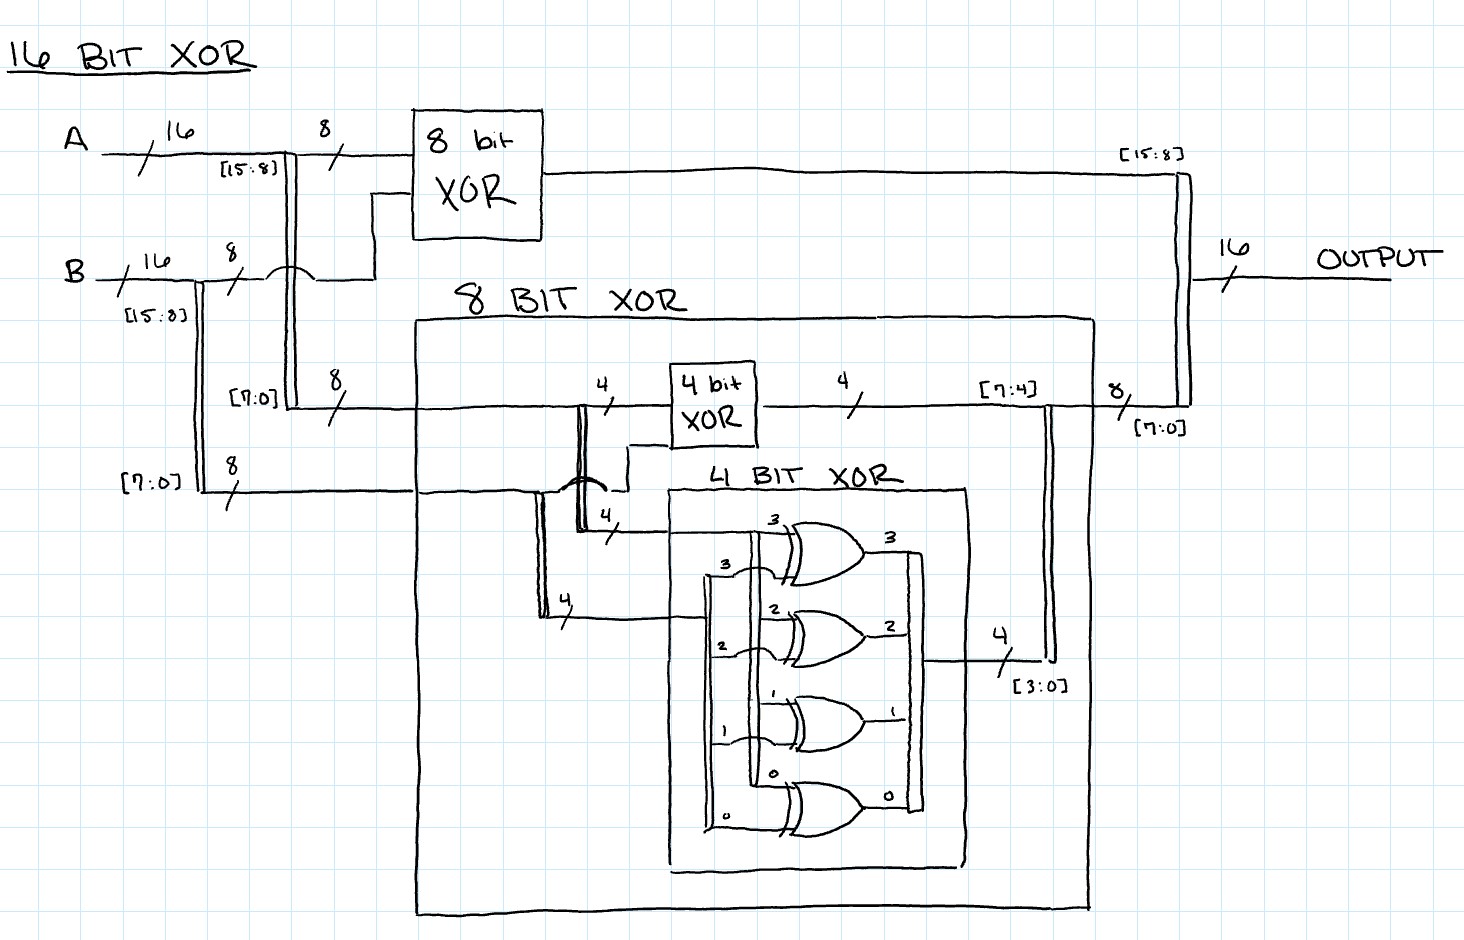 16 BIT XOR
A
16
[15:8]
8
8 bit
XOR
[15:8]
B
16
8
[15:8]
16
OUTPUT
8 BIT XOR
[7:0]
8
4
4 bit
XOR
4
[7:4]
8
[7:0]
[7:0]
8
4 BIT XOR
4
3
3
3
4
2
2
2
4
[3:0]
1
1
1
0
0
0